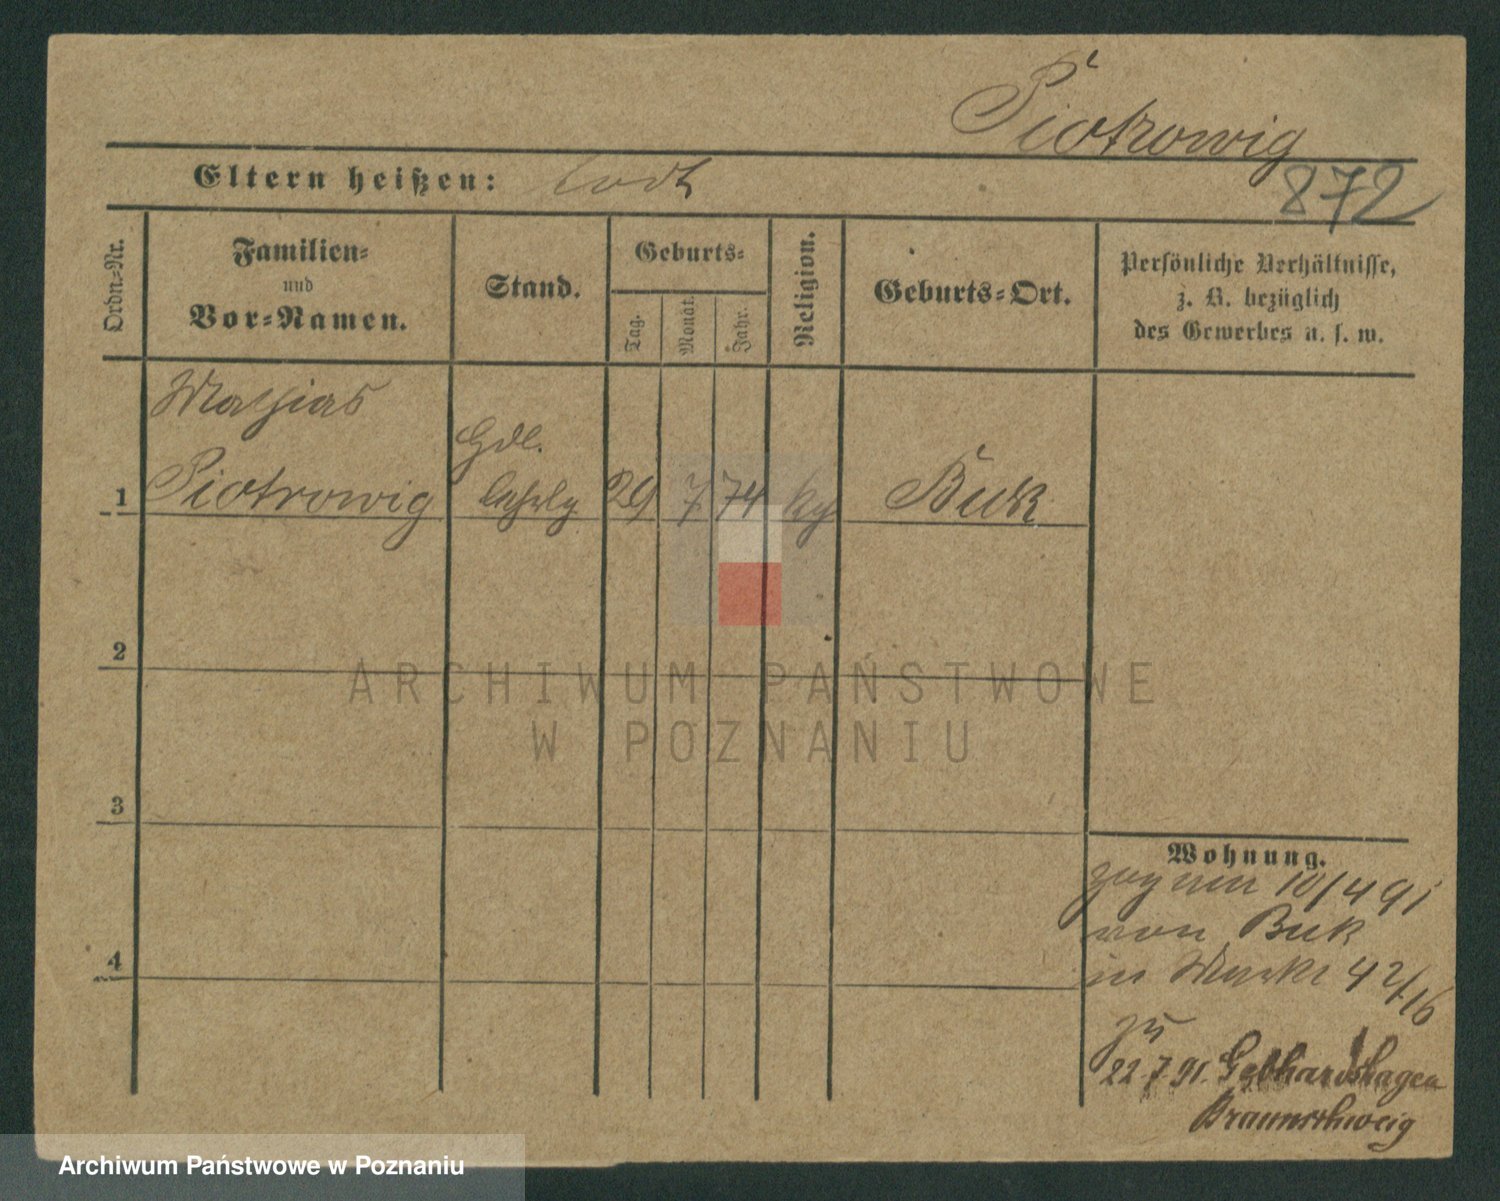 Piotrowig
872
Eltern heißen: todt
Ordn.-Nr.
Familien-
und
Vor-Namen.
Stand.
Geburts-
Tag.
Monat.
Jahr.
Religion.
Geburts-Ort.
Persönliche Verhältnisse,
z. B. bezüglich
des Gewerbes u. s. w.
Mathias
Hdl.
1 Piotrowig 29 7 74 Buk
2
3
4
ARCHIWUM PAŃSTWOWE
W POZNANIU
Wohnung.
10/4 91
von Buk
in Markt 42/16
22.7.91. Gebhardshagen
Braunschweig
Archiwum Państwowe w Poznaniu